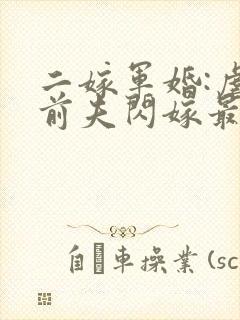 二嫁軍婚:虐
前夫閃嫁最
車操業(sc